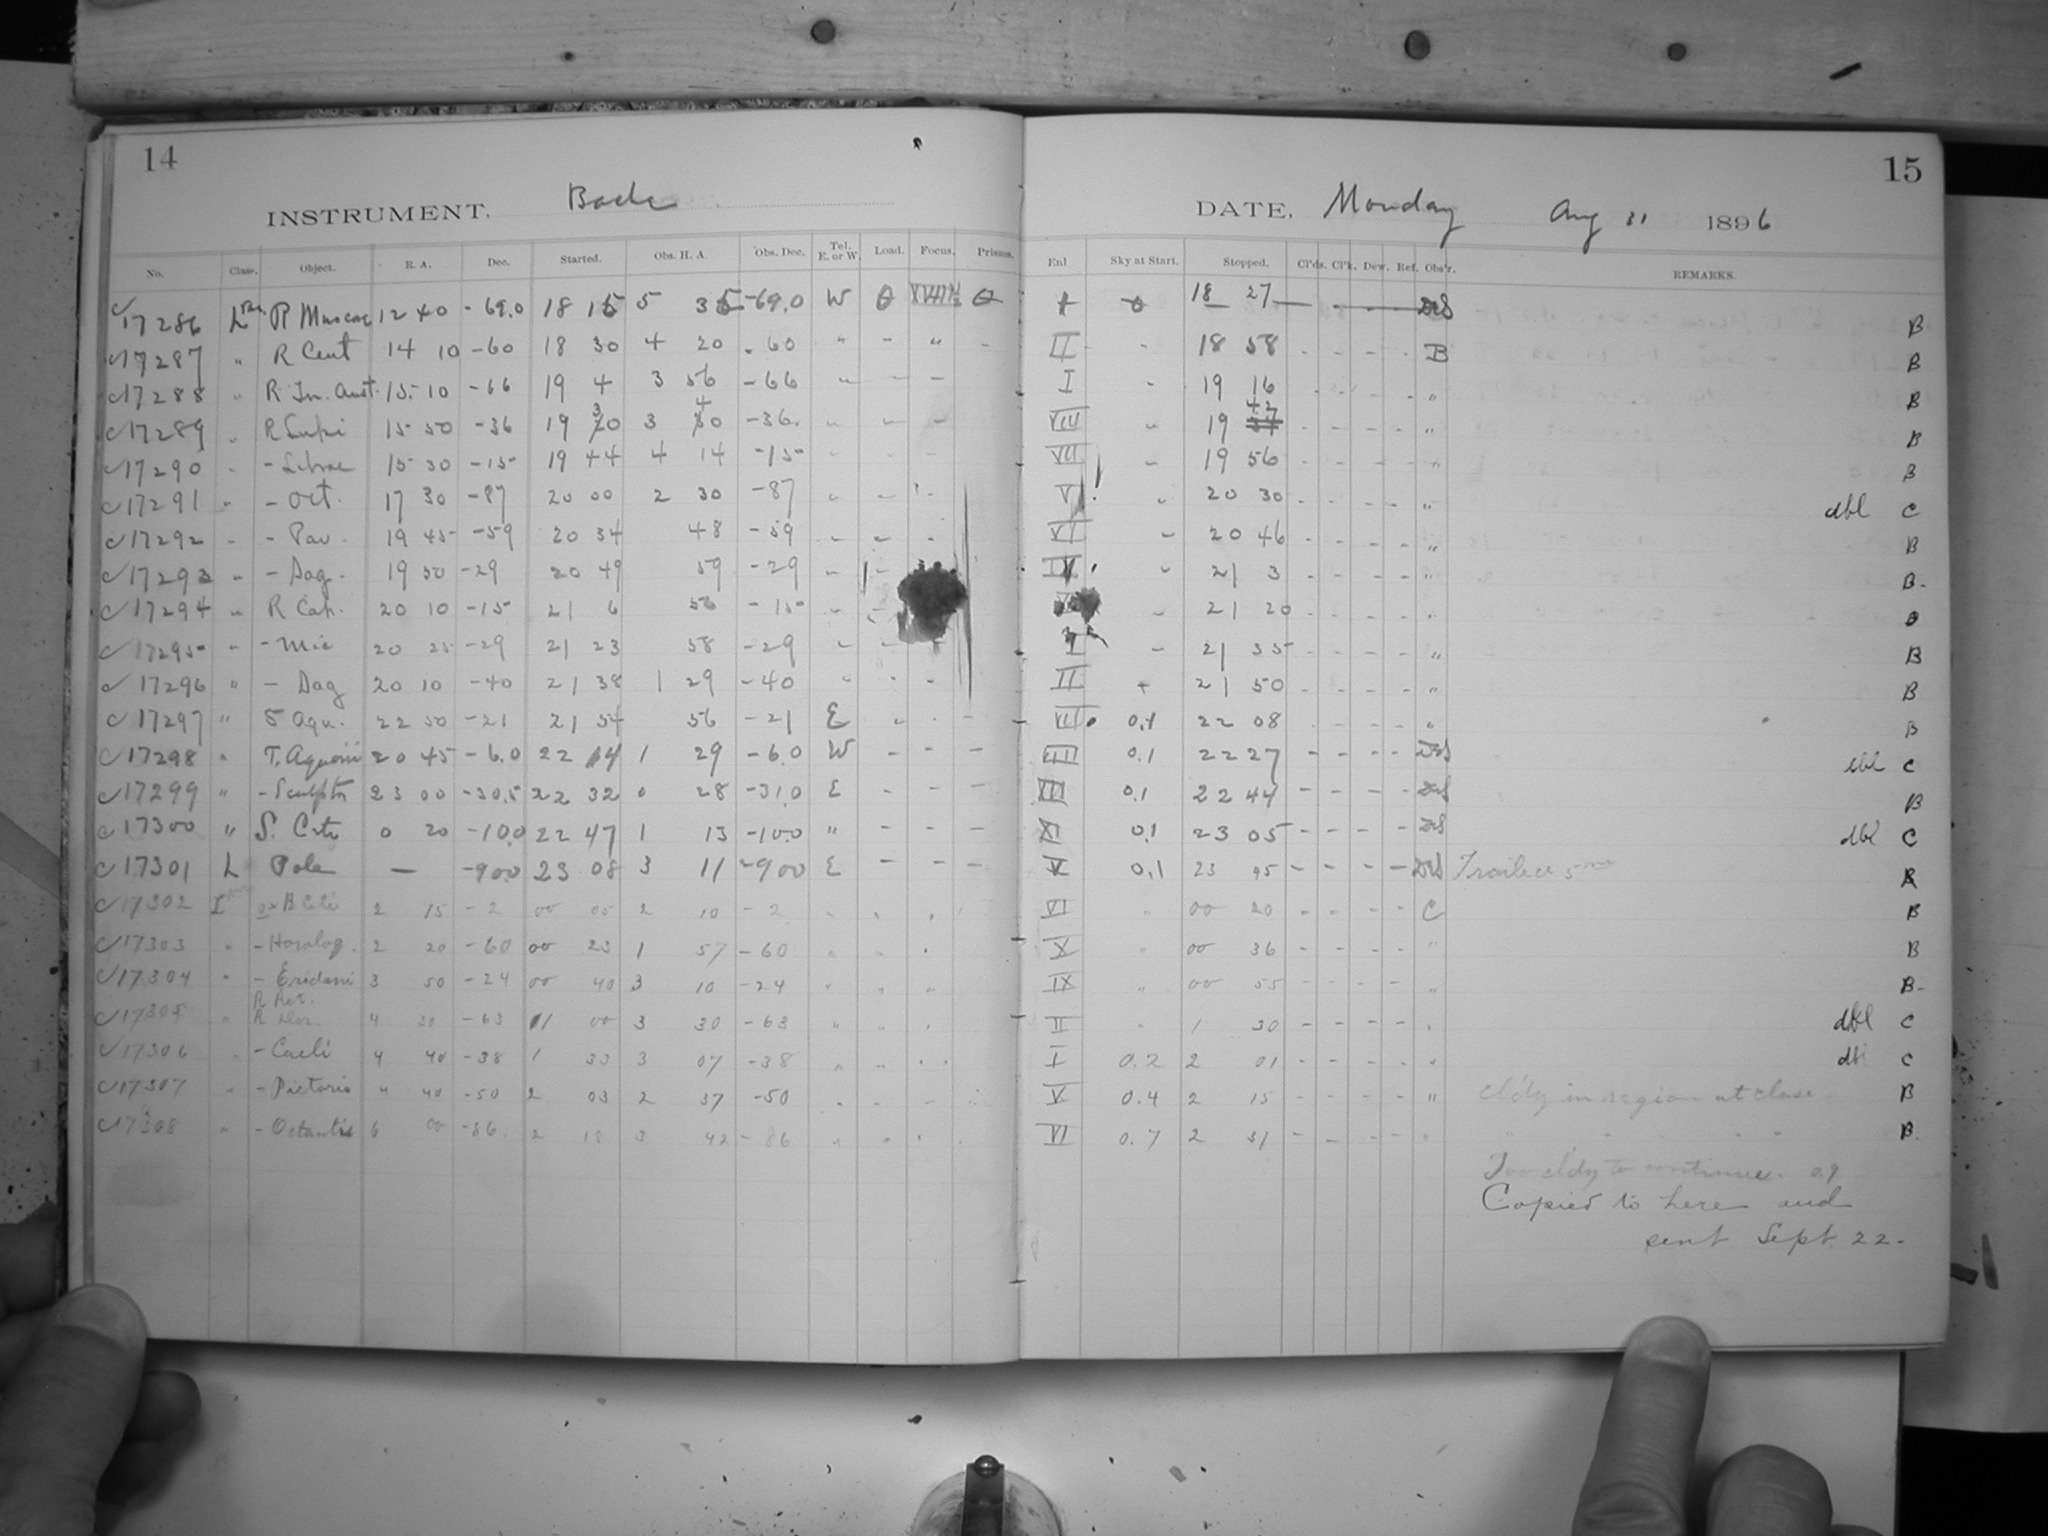 14
INSTRUMENT. Bache
No. Class. Object. R. A. Dec. Started. Obs. H. A. Obs. Dec. Tel. E. or W. Load. Focus. Prisms.
17286 R Muscae 12 40 -69.0 18 15 5 35 -69.0 W
17287 " R Cent 14 10 -60 18 30 4 20 -60 " - " -
17288 " R Tr. Aust. 15 10 -66 19 4 3 56 -66
17289 " R Lupi 15 50 -36 19 30 3 40 -36
17290 - Librae 15 30 -15 19 44 4 14 -15
17291 - Oct. 17 30 -87 20 00 2 30 -87
17292 - Pav. 19 45 -59 20 34 48 -59
17293 - Sag. 19 50 -29 20 49 59 -29
17294 " R Cap. 20 10 -15 21 6 56 -15
17295 " - Mic 20 25 -29 21 23 58 -29
17296 " - Sag 20 10 -40 21 38 1 29 -40
17297 " Aqu. 22 50 -21 21 54 56 -21 E
17298 " T. Aquarii 20 45 -6.0 22 14 1 29 -6.0 W - - -
17299 " - Sculptor 23 00 -30.5 22 32 0 28 -31.0 E - - -
17300 " S. Ceti 0 20 -10.0 22 47 1 13 -10.0 " - - -
17301 L Pole — -90.0 23 08 3 11 -90.0 E - - -
17302 Ceti 2 15 -2 00 05 2 10 -2
17303 " - Horolog. 2 20 -60 00 23 1 57 -60
17304 " - Eridani 3 50 -24 00 40 3 10 -24
R Ret.
17305 " R Dor. 4 30 -63 1 00 3 30 -63
17306 " - Caeli 4 40 -38 1 33 3 07 -38
17307 " - Pictoris 4 40 -50 2 03 2 37 -50
17308 " - Octantis 6 00 -86. 2 18 3 42 -86
15
DATE, Monday Aug 31 1896
Enl Sky at Start. Stopped. Cl'ds. Cl'k. Dew. Ref. Obs'r. REMARKS.
18 27 B
II - 18 58 - - - - B B
I - 19 16 " B
VIII 19 47 " B
VII 19 56 " B
V 20 30 " dbl C
VI 20 46 " B
21 3 " B
21 20 "
I - 21 35 " B
II 21 50 " B
0.1 22 08 " B
0.1 22 27 - - - - dbl C
0.1 22 44 - - - - B
XI 0.1 23 05 - - - - dbl C
V 0.1 23 45 - - - - Trailed 5m
VI " 00 20 - - - - C B
X " 00 36 - - - - " B
IX " 00 55 - - - - " B
II " 1 30 - - - - " dbl C
I 0.2 2 01 - - - - " dbl C
V 0.4 2 15 - - - - " cldy in region at close. B
VI 0.7 2 31 - - - - " " " " " B
Too cldy to continue. 0.9
Copied to here and
sent Sept. 22.